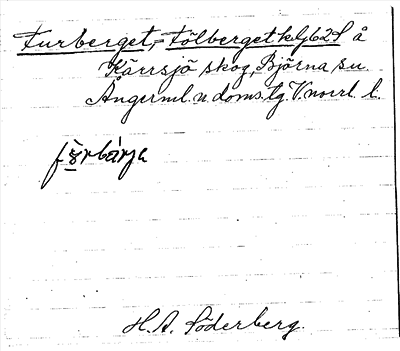 Furberget, = Fölberget klj 62 S å
Kärrsjö skog, Björna su.
Ångerml. n. doms. lg. V. norrl. l.
fùrbárja
H. A. Söderberg.